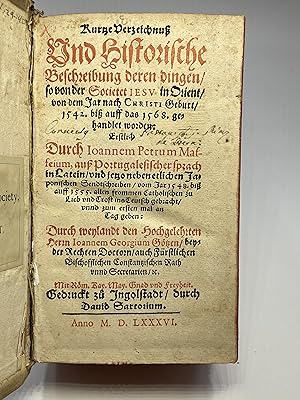 Kurtze Verzeichnuß
Und Historische
Beschreibung deren dingen/
so von der Societet IESV in Orient/
von dem Jar nach CHRISTI Geburt/
1542. biß auff das 1568. ge-
handlet worden.
Erstlich
Durch Ioannem Petrum Maf-
feium, auß Portugalesischer sprach
in Latein/ und jetzo neben etlichen Ja-
ponischen Sendtschreiben/ vom Jar 1548. biß
auff 1555. allen frommen Catholischen zu
Lieb und Trost ins Teutsch gebracht/
unnd zum ersten mal an
Tag geben:
Durch weylandt den Hochgelehrten
Herrn Ioannem Georgium Götzen/ bey-
der Rechten Doctorn/ auch Fürstlichen
Bischofflichen Constantzischen Rath
unnd Secretarien/ &c.
Mit Röm. Kay. May. Gnad und Freyheit.
Gedruckt zů Ingolstadt/ durch
David Sartorium.
Anno M. D. LXXXVI.
ociety,